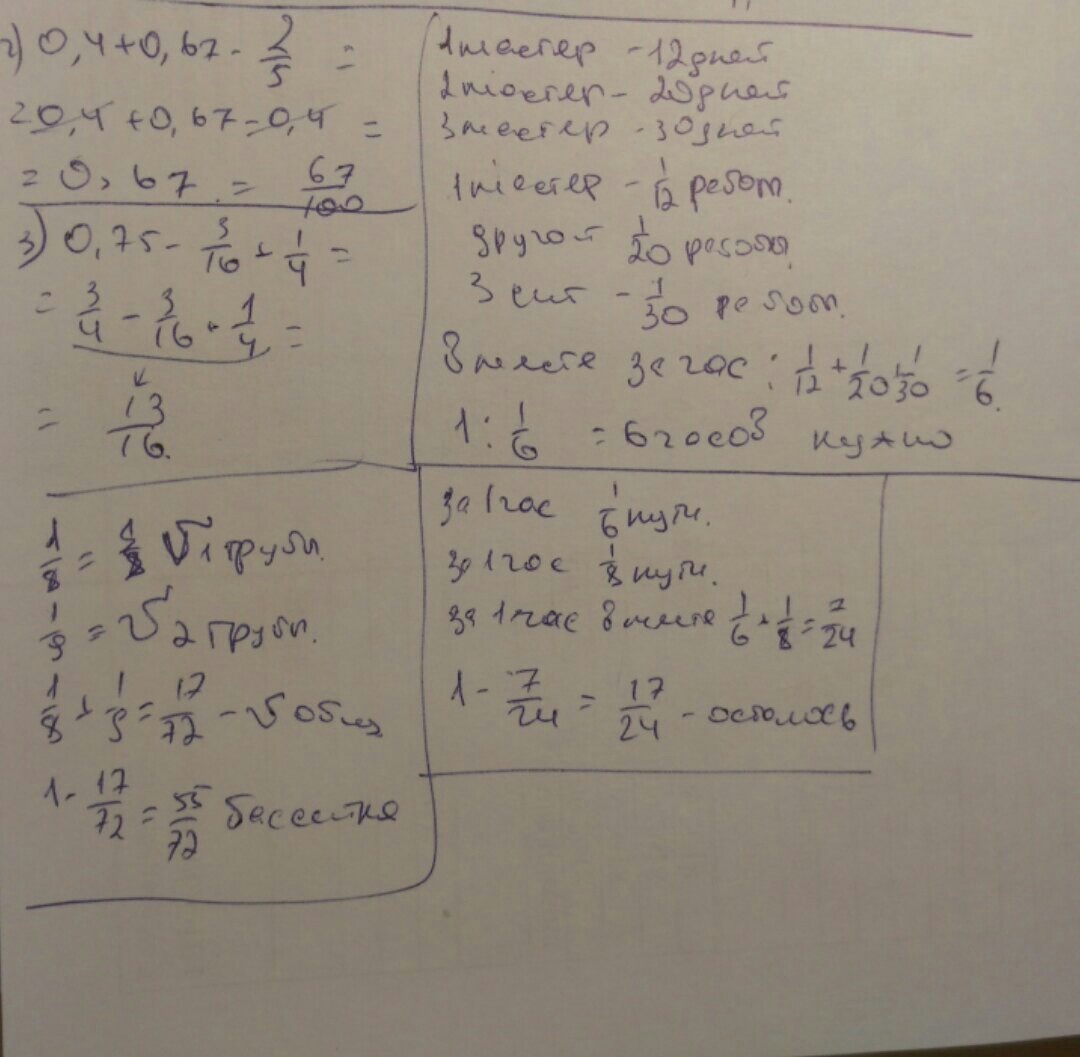 2) 0,4+0,67-2/5 =
=0,4+0,67-0,4 =
= 0,67 = 67/100
3) 0,75 - 3/16 + 1/4 =
= 3/4 - 3/16 + 1/4 =
= 13/16.
1мастер - 12дней
2мастер - 20дней
3мастер - 30дней
1мастер - 1/12 работ.
другой 1/20 работы
3 - 1/30 работ.
Вместе за час: 1/12 + 1/20 + 1/30 = 1/6.
1 : 1/6 = 6часов нужно
1/8 = V 1 трубы.
1/9 = V 2 трубы.
1/8 + 1/9 = 17/72 - V общ
1 - 17/72 = 55/72 бассейна
За 1час 1/6 пути.
за 1час 1/8 пути.
за 1час вместе 1/6 + 1/8 = 7/24
1 - 7/24 = 17/24 - осталось